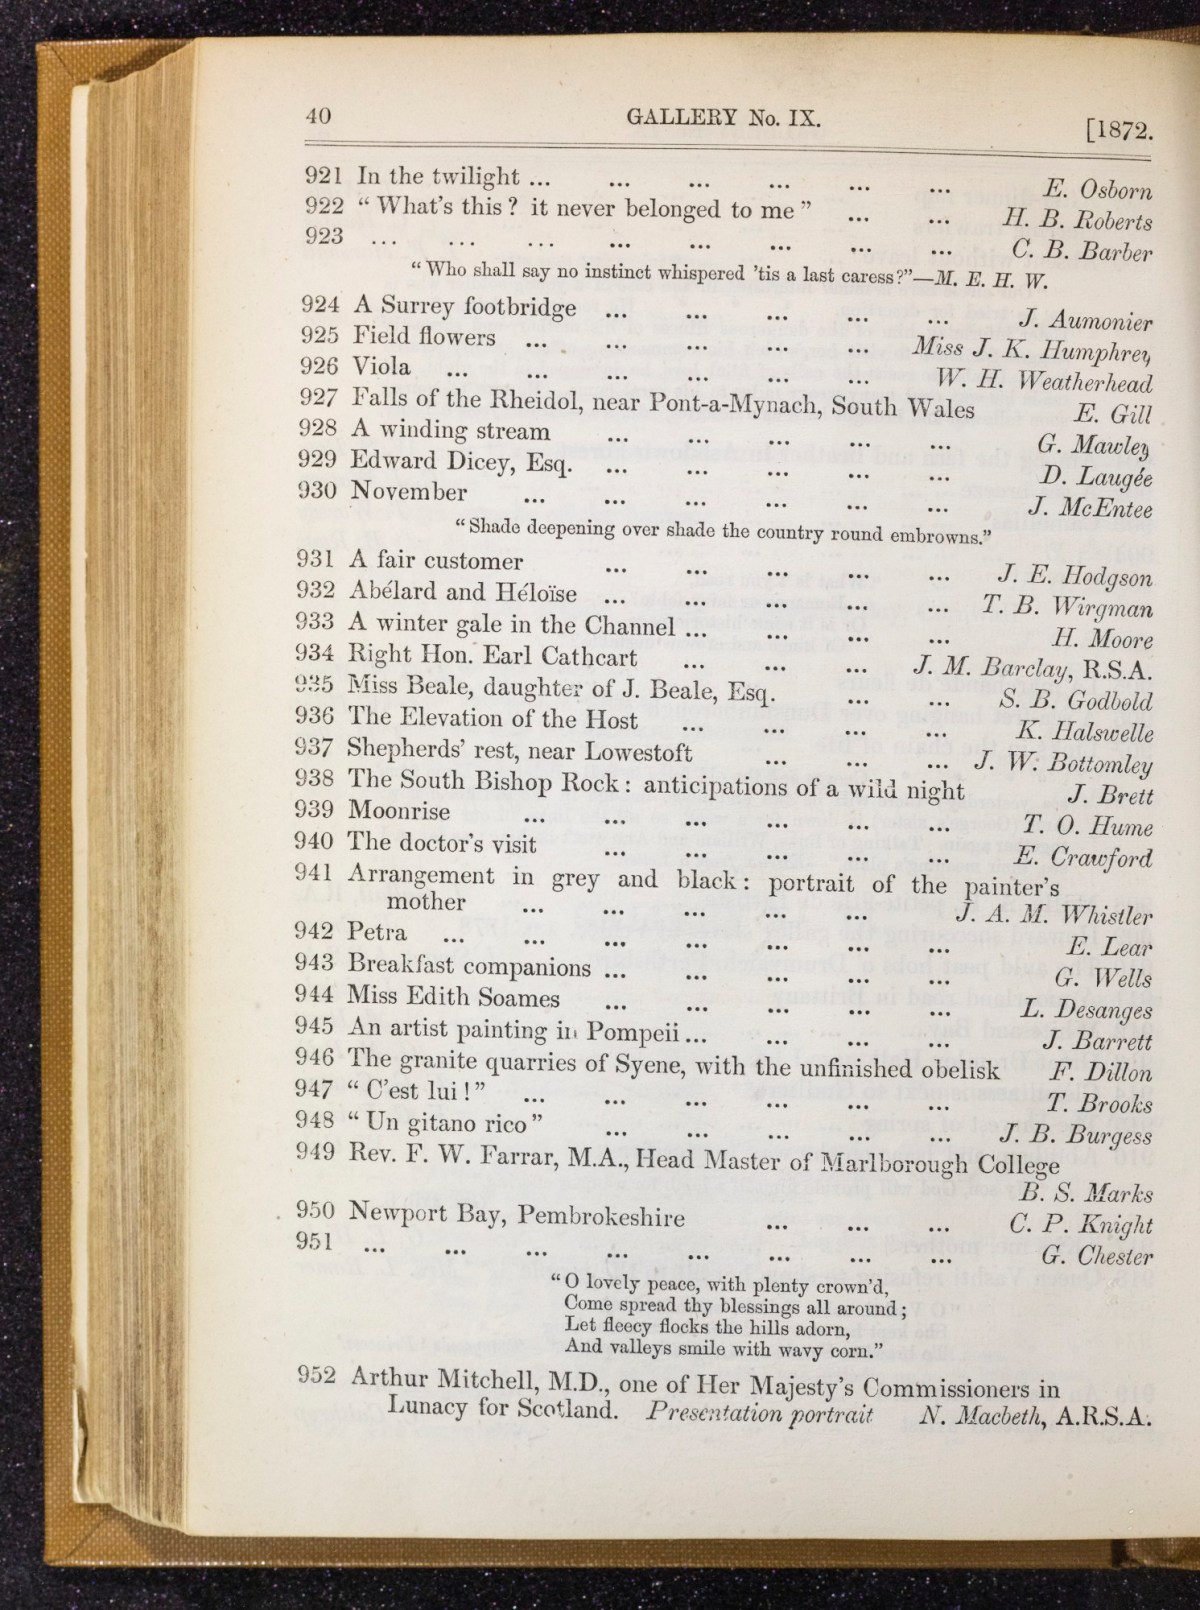 40 GALLERY No. IX. [1872.
921 In the twilight ... ... ... ... ... ... E. Osborn
922 “ What's this ? it never belonged to me ” ... ... H. B. Roberts
923 ... ... ... ... ... ... ... ... C. B. Barber
“ Who shall say no instinct whispered ’tis a last caress?”—M. E. H. W.
924 A Surrey footbridge ... ... ... ... ... J. Aumonier
925 Field flowers ... ... ... ... ... Miss J. K. Humphrey
926 Viola ... ... ... ... ... ... W. H. Weatherhead
927 Falls of the Rheidol, near Pont-a-Mynach, South Wales E. Gill
928 A winding stream ... ... ... ... ... G. Mawley
929 Edward Dicey, Esq. ... ... ... ... ... D. Laugée
930 November ... ... ... ... ... ... J. McEntee
“Shade deepening over shade the country round embrowns.”
931 A fair customer ... ... ... ... ... J. E. Hodgson
932 Abélard and Héloïse ... ... ... ... ... T. B. Wirgman
933 A winter gale in the Channel ... ... ... ... H. Moore
934 Right Hon. Earl Cathcart ... ... ... J. M. Barclay, R.S.A.
935 Miss Beale, daughter of J. Beale, Esq. ... ... S. B. Godbold
936 The Elevation of the Host ... ... ... ... K. Halswelle
937 Shepherds’ rest, near Lowestoft ... ... ... J. W. Bottomley
938 The South Bishop Rock : anticipations of a wild night J. Brett
939 Moonrise ... ... ... ... ... ... T. O. Hume
940 The doctor's visit ... ... ... ... ... E. Crawford
941 Arrangement in grey and black : portrait of the painter's
mother ... ... ... ... ... J. A. M. Whistler
942 Petra ... ... ... ... ... ... ... E. Lear
943 Breakfast companions ... ... ... ... ... G. Wells
944 Miss Edith Soames ... ... ... ... ... L. Desanges
945 An artist painting in Pompeii ... ... ... ... J. Barrett
946 The granite quarries of Syene, with the unfinished obelisk F. Dillon
947 “ C'est lui ! ” ... ... ... ... ... ... T. Brooks
948 “ Un gitano rico ” ... ... ... ... ... J. B. Burgess
949 Rev. F. W. Farrar, M.A., Head Master of Marlborough College
B. S. Marks
950 Newport Bay, Pembrokeshire ... ... ... C. P. Knight
951 ... ... ... ... ... ... ... ... G. Chester
“ O lovely peace, with plenty crown'd,
Come spread thy blessings all around ;
Let fleecy flocks the hills adorn,
And valleys smile with wavy corn.”
952 Arthur Mitchell, M.D., one of Her Majesty's Commissioners in
Lunacy for Scotland. Presentation portrait N. Macbeth, A.R.S.A.